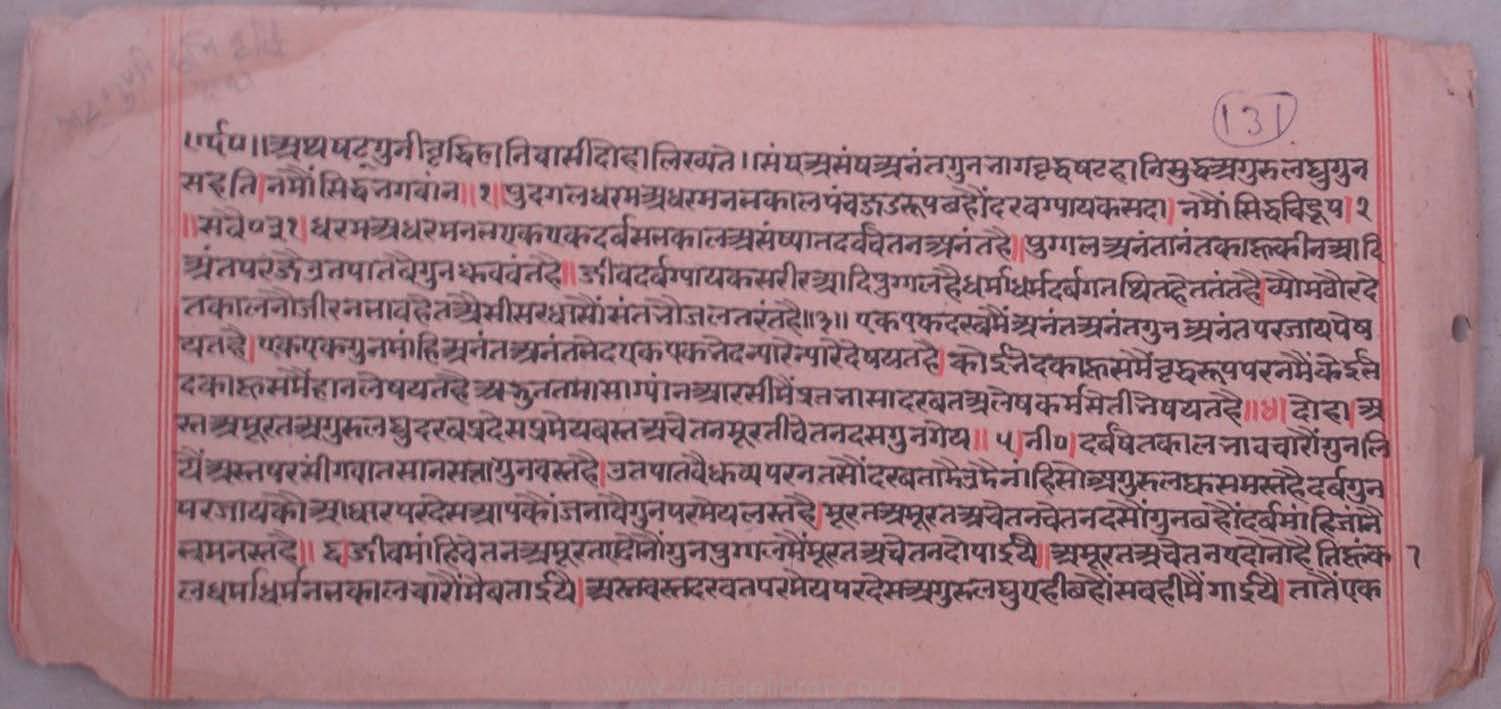 131
॥अथषट्गुनीवृद्धिहानिवासीदोहालिख्यते॥संषअसंषअनंतगुनभागवृद्धषटहानिसुद्धअगुरुलघुगुन
सहति|नमौंसिद्धभगवांन॥१|पुदगलधरमअधरमनभकालपंचजडरूपबहौंदरवग्यायकसदा|नमौंसिद्धचिद्रूप|२
॥सवै०३१|धरमअधरमनभएकएकदर्बसभकालअसंष्यातदर्वचेतनअनंतहै॥पुग्गलअनंतानंतकाहूकीनआदि
अंतपरजैउतपातवैगुनध्रुववंतहै॥जीवदर्वग्यायकसरीरआदिपुग्गलहैधर्माधर्मदर्बगतथितहेततंतहै|व्यौमवौरदे
तकालनौजीरनभावहेतअैसीसरधासौंसंतभौजलतरंतहै॥३॥एकएकदरवमैंअनंतअनंतगुनअनंतपरजायपेष
यतहै|एकएकगुनमांहिअनंतअनंतभेदएकएकभेदन्यारेन्यारेदेषयतहै|कोईभेदकाहूसमैंवृद्धरूपपरनमैंकेईभे
दकाहूसमैंहानलेषयतहैअद्भुततमासाग्यांनआरसीमैंप्रतभासादरबतअलेषकर्मसेतीभेषयतहै॥४|दोहा|अ
स्तअमूरतअगुरुलघुदरवप्रदेसप्रमेयबस्तअचेतनमूरतीचेतनदसगुनगेय॥५|नी०|दर्बषेतकालभावचारौंगुनलि
यैंअस्तपरसौंगपातसानसत्तागुनवस्तहै|उतपातवैध्रुव्यपरनतसौंदरबता
परजायकौआधारपरदेसआपकौंजनावैगुनपरमेयलस्तहै|मूरतअमूरतअचेतनचेतनदसौंगुनबहौंदर्बमांहिजांनै
भ्रमनस्तहै॥६|जीवमांहिचेतनअमूरतादोनौंगुनपुग्गलमैंमूरतअचेतनदोपाईयै॥अमूरतअचेतनएदोनोंहैतिहूंक
लधर्माधर्मनभकालचारौंमैबताईयै|अस्तवस्तदरवतपरमेयपरदेसअगुरुलघुएहीबहौंसबहीमैंगाईयै|तातैंएक